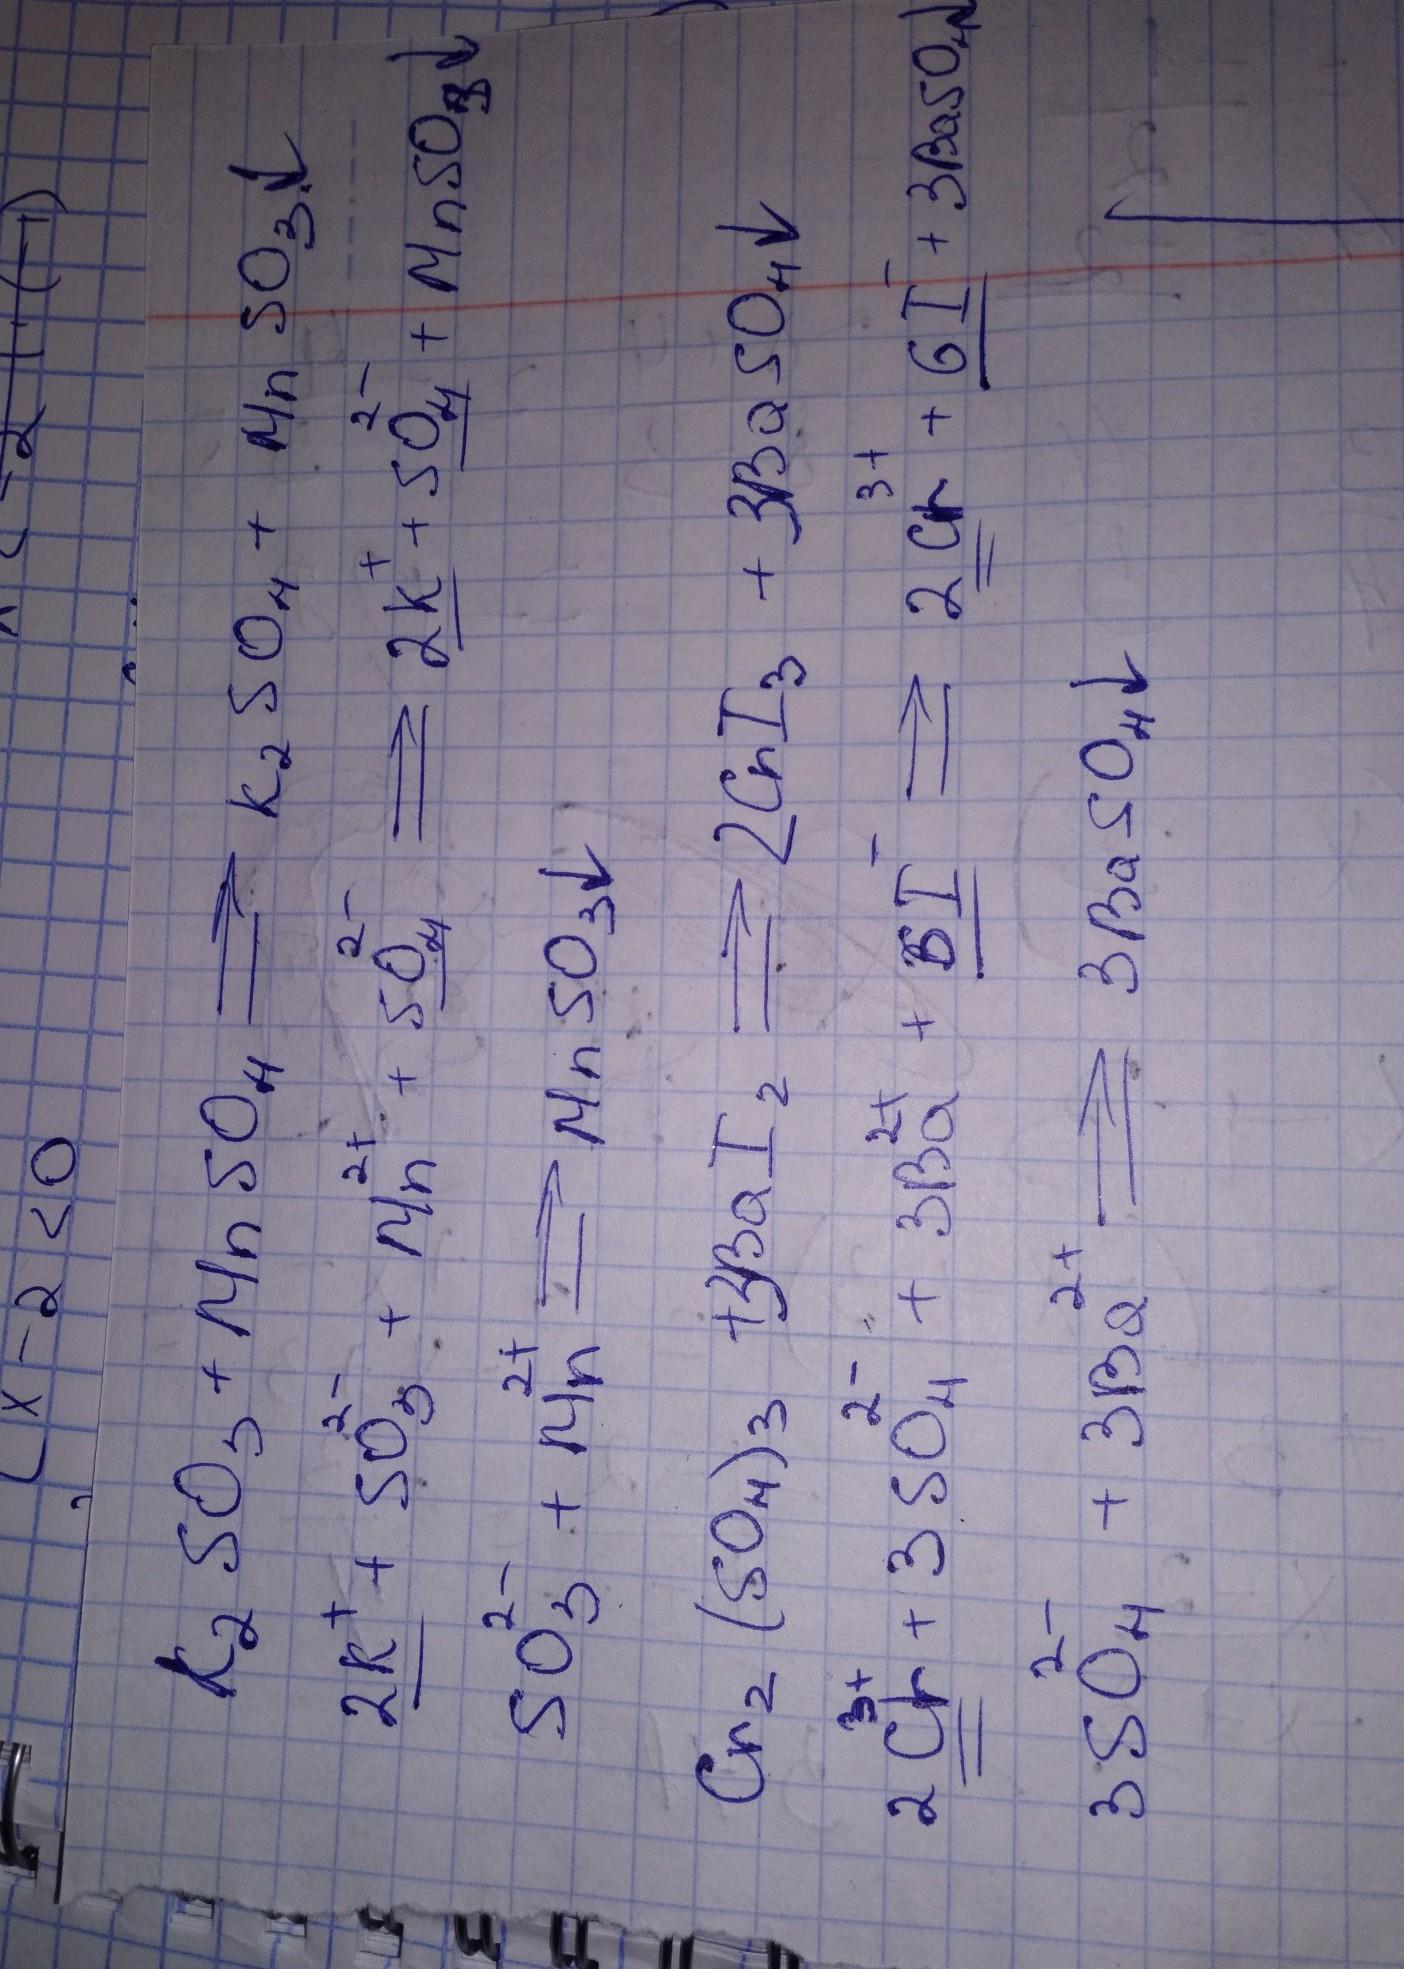 x - 2 < 0
K₂SO₃ + MnSO₄ ⇒ K₂SO₄ + MnSO₃↓
2K⁺ + SO₃²⁻ + Mn²⁺ + SO₄²⁻ ⇒ 2K⁺ + SO₄²⁻ + MnSO₃↓
SO₃²⁻ + Mn²⁺ ⇒ MnSO₃↓
Cr₂(SO₄)₃ + 3BaI₂ ⇒ 2CrI₃ + 3BaSO₄↓
2Cr³⁺ + 3SO₄²⁻ + 3Ba²⁺ + 6I⁻ ⇒ 2Cr³⁺ + 6I⁻ + 3BaSO₄↓
3SO₄²⁻ + 3Ba²⁺ ⇒ 3BaSO₄↓